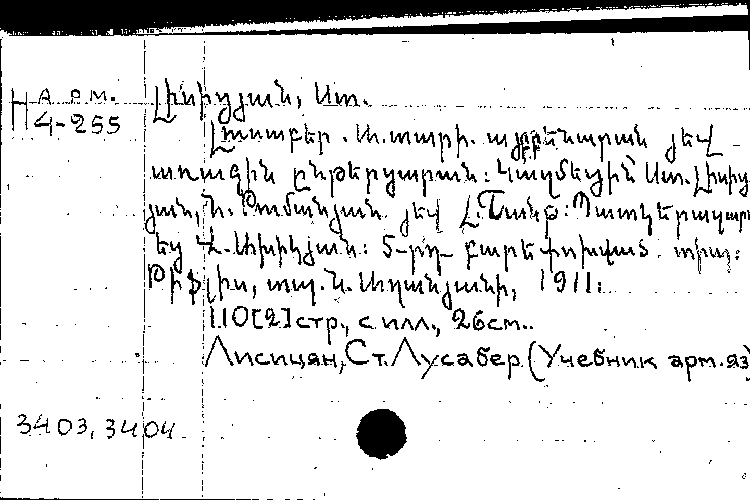 АРМ.
Н 4-255
Լիսիցյան, Ստ.
Լուսաբեր. Ա. տարի. այբբենարան յեվ
առաջին ընթերցարան: Կազմեցին Ստ. Լիսից
յան, Հ. Թումանյան յեվ Լ. Շանթ: Պատկերազար
եց Վ. Ախիկյան: 5-րդ բարեփոխված տիպ:
Թիֆլիս, տպ. Ն. Աղանյանի, 1911:
110[2]стр., с илл., 26см..
Лисицян, Ст. Лусабер. (Учебник арм.яз)
3403, 3404